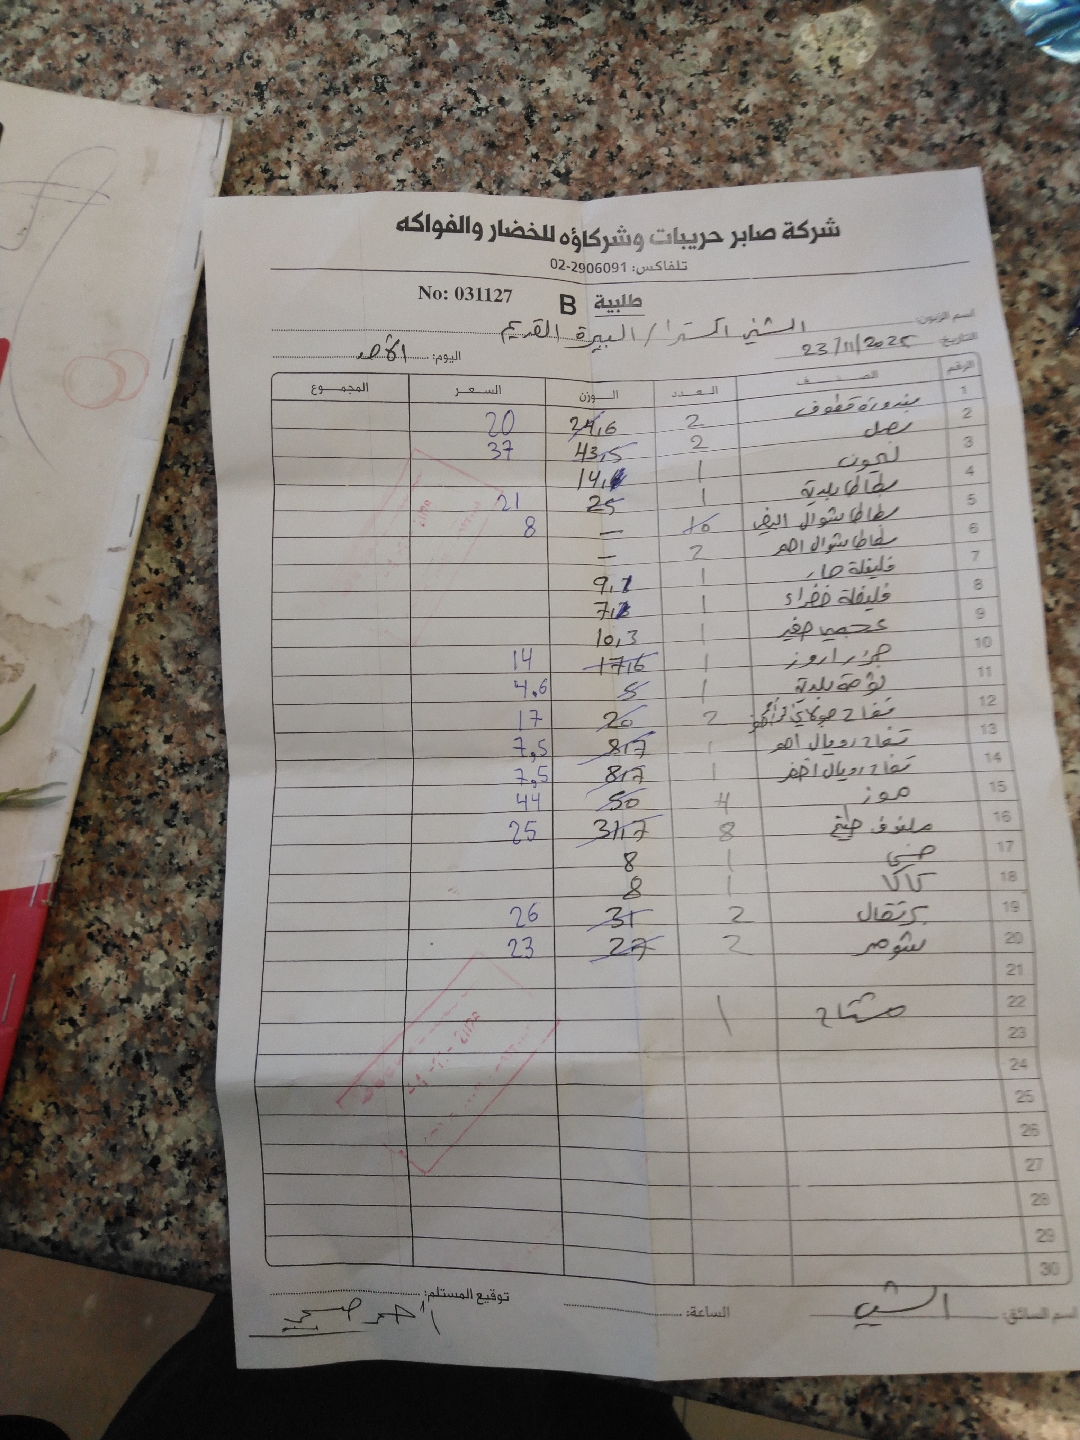 شركة صابر حريبات وشركاؤه للخضار والفواكه
تلفاكس: 02-2906091
No: 031127 B طلبية
اسم الزبون: الشني اكسترا / البيرة القديم
التاريخ: 23/11/2025
اليوم: الأحد
الرقم الصنف العدد الوزن السعر المجموع
1 بندورة قطوف 2 24,6 20
2 بصل 2 43,5 37
3 ليمون 1 14,
4 بطاطا بلدية 1 25 21
5 بطاطا شوال ابيض 10 — 8
6 بطاطا شوال احمر 2 —
7 فليفلة حار 1 9,
8 فليفلة خضراء 1 7,
9 صغير 1 10,3
10 جزر اروز 1 17,6 14
11 بلدية 1 5 4,6
12 تفاح 2 20 17
13 تفاح رويال احمر 1 8,7 7,5
14 تفاح رويال اخضر 1 8,7 7,5
15 موز 4 50 44
16 ملفوف 8 31,7 25
17 1 8
18 كاكا 1 8
19 برتقال 2 31 26
20 شومر 2 27 23
21
22 مشتاح 1
23
24
25
26
27
28
29
30
اسم السائق: الساعة: توقيع المستلم: